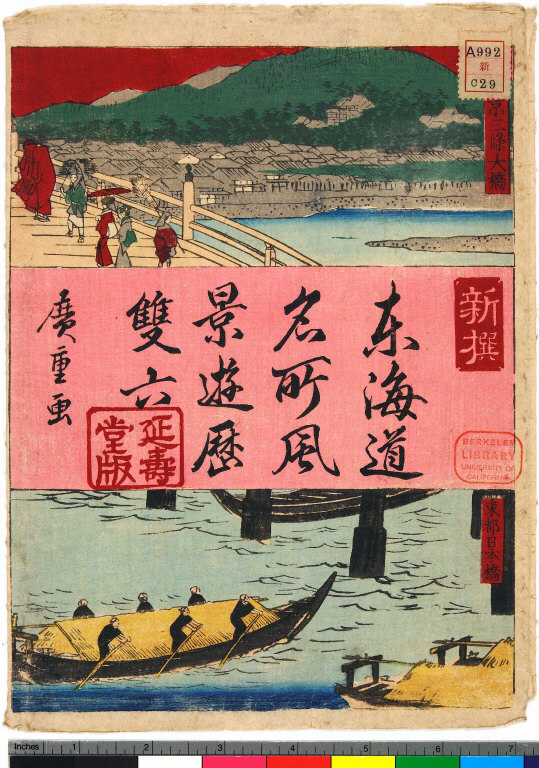 A992
新
C29
京三條大橋
新撰
东海道
名所风
景遊歴
雙六
廣重画
延壽
堂版
BERKELEY
LIBRARY
UNIVERSITY OF
CALIFORNIA
東都日本橋
Inches
1
2
3
4
5
6
7